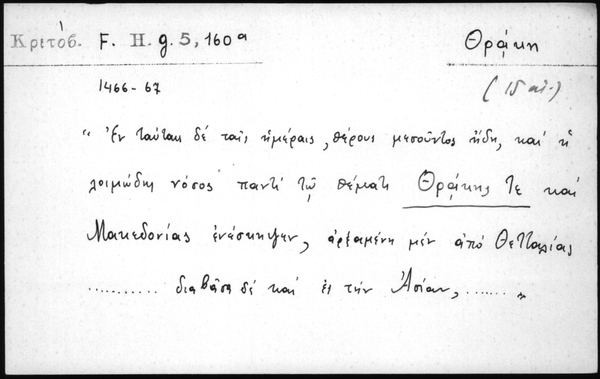 Κριτόβ. F. H. g. 5, 160a
Θρᾴκη
1466-67
(15 αι.)
“ Ἐν ταύταις δέ ταῖς ἡμέραις, θέρους μεσοῦντος ἤδη, καί ἡ
λοιμώδης νόσος παντί τῷ θέματι Θρᾴκης τε καί
Μακεδονίας ἐνέσκηψεν, ἀρξαμένη μέν ἀπό Θετταλίας
.......... διαβᾶσα δέ καί ἐς τήν Ἀσίαν, ....... „